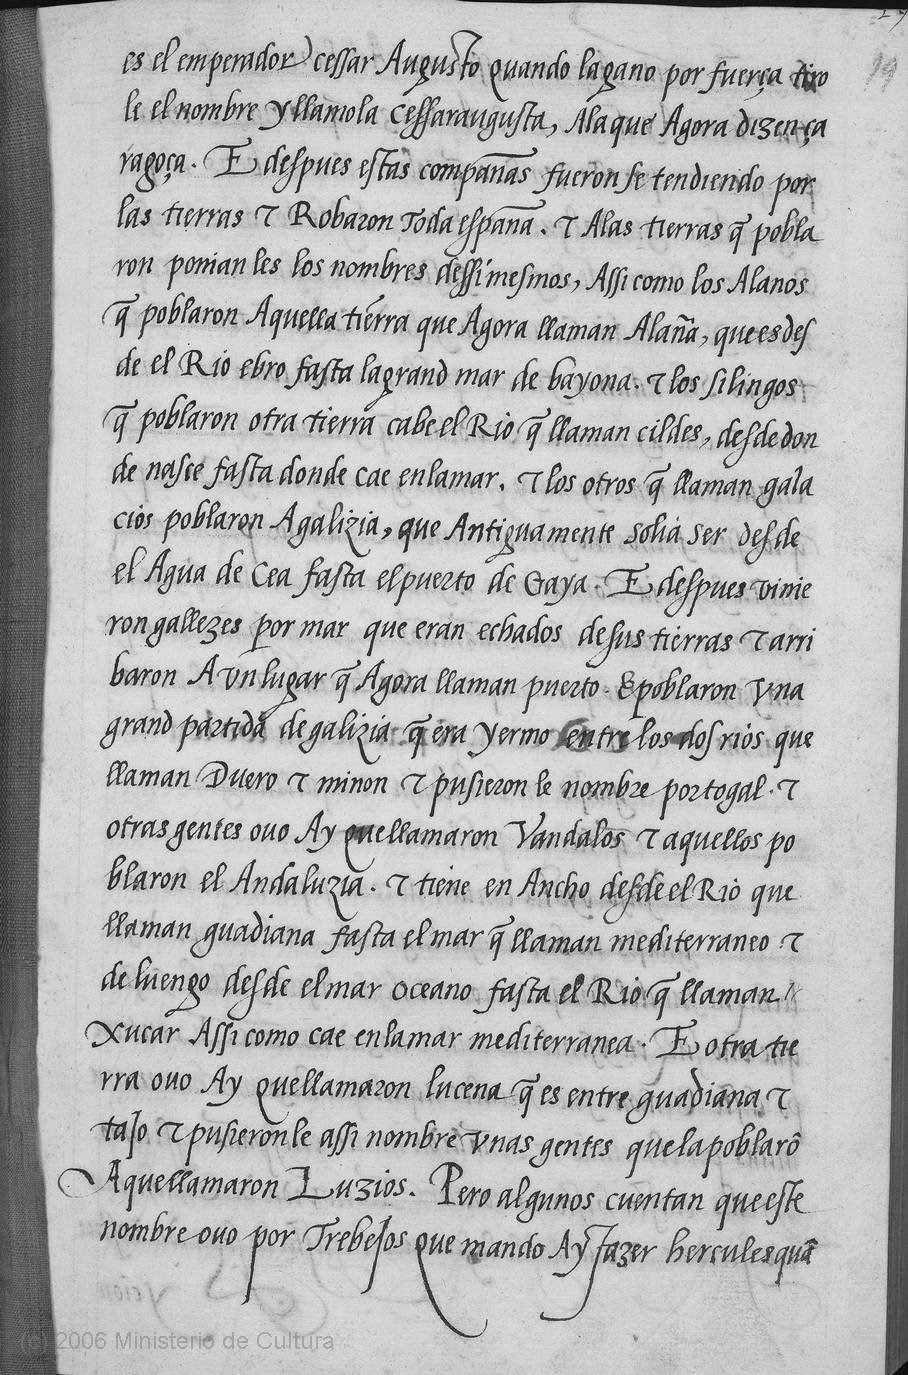 19
es el emperador cessar Augusto quando la gano por fuerça tiro
le el nombre y llamola cessaraugusta, Ala que Agora dizen ça
ragoça. E despues estas compañas fueron se tendiendo por
las tierras τ Robaron Toda españa. τ Alas tierras q̃ pobla
ron ponian les los nombres dessi mesmos, Assi como los Alanos
q̃ poblaron Aquella tierra que Agora llaman Alaña, que es des
de el Rio ebro fasta la grand mar de bayona. τ los silingos
q̃ poblaron otra tierra cabe el Rio q̃ llaman cildes, desde don
de nasce fasta donde cae en la mar. τ los otros q̃ llaman gala
cios poblaron A galizia, que Antigua mente solia ser desde
el Agua de Cea fasta el puerto de Gaya. E despues vinie
ron gallezes por mar que eran echados de sus tierras τ arri
baron A vn lugar q̃ Agora llaman puerto. E poblaron vna
grand partida de galizia q̃ era yermo entre los dos rios que
llaman Duero τ minon τ pusieron le nombre portogal. τ
otras gentes ouo Ay que llamaron Vandalos τ aquellos po
blaron el Andaluzia. τ tiene en Ancho desde el Rio que
llaman guadiana fasta el mar q̃ llaman mediterraneo τ
de luengo desde el mar oceano fasta el Rio q̃ llaman
Xucar Assi como cae en la mar mediterranea. E otra tie
rra ouo Ay que llamaron lucena q̃ es entre guadiana τ
tajo τ pusieron le assi nombre vnas gentes que la poblarõ
A que llamaron Luzios. Pero algunos cuentan que este
nombre ouo por Trebejos que mando Ay fazer hercules quã
(c) 2006 Ministerio de Cultura